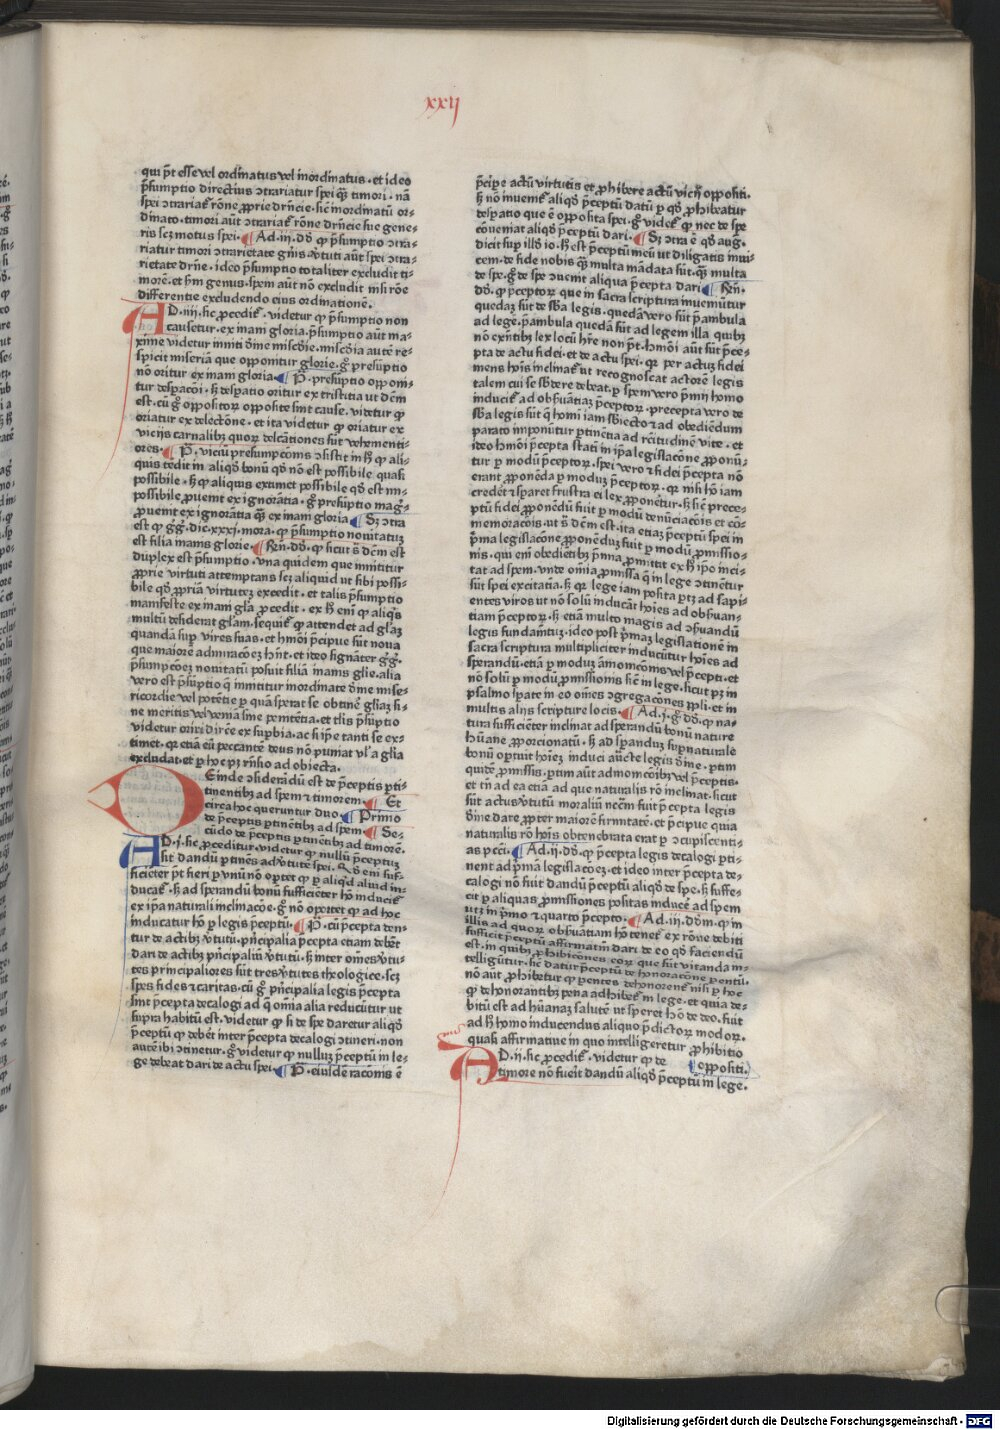 xxij
qui pt̄ esse vel ordinatus vel inordinatus · et ideo
p̄sumptio directius ↄtrariatur spei q̄ȝ timori · nā
spei ↄtrariat᷑ rōne ꝓprie dr̄ncie · sic inordinatū or-
dinato · timori aūt ↄtrariat᷑ rōne dr̄ncie sue gene-
ris scȝ motus spei · Ad · iii · dð ꝙ p̄sumptio ↄtra-
riatur timori ↄtrarietate gn̄is · v̓tuti aūt spei ↄtra-
rietate dr̄ne · ideo p̄sumptio totaliter excludit ti-
morē · et ẜm genus · spem aūt nō excludit nisi rōe
differentie excludendo eius ordinationē ·
AD · iiij · sic ꝓcedit᷑ · videtur ꝙ p̄sumptio non
causetur · ex inani gloria · p̄sumptio aūt ma-
xime videtur inniti dīne misc̄die · misc̄dia autē re-
spicit miseriā que opponitur glorie · gͦ presūptio
nō oritur ex inani gloria · P̄ · presūptio opponi-
tur despacōi · sȝ despatio oritur ex tristitia ut dc̄m
est · cū gͦ oppositoꝝ opposite sint cause · videtur ꝙ
oriatur ex delectōne · et ita videtur ꝙ oriatur ex
vicijs carnalibȝ quoꝝ delcationes sūt vehementi-
ores · P̄ · viciū presumpcōnis ↄsistit in hͦ ꝙ ali-
quis tēdit in aliqð bonū qð nō est possibile quasi
possibile · sȝ ꝙ aliquis extimet possibile qð est im-
possibile ꝓuenit ex ignorātia · gͦ presūptio magͥˢ
ꝓuenit ex ignorātia q̄ȝ ex inani gloria Sȝ ↄtra
est ꝙ gͥgͥ · dic · xxxi · mora · ꝙ p̄sumptio nouitatuȝ
est filia inanis glorie · Rn̄ · dð · ꝙ sicut sͣ dc̄m est
duplex est p̄sumptio · vna quidem que innititur
ꝓprie virtuti attemptans scȝ aliquid ut sibi possi-
bile qð ꝓpriā virtuteȝ excedit · et talis p̄sumptio
manifeste ex inani glia ꝓcedit · ex hͦ enī ꝙ aliqͥˢ
multū desiderat gliam · sequit᷑ ꝙ attendet ad gliaȝ
quandā suꝑ vires suas · et hmōi p̄cipue sūt noua
que maiorē admiracōeȝ hn̄t · et ideo signāter gͥgͥ ·
p̄sumpcōeȝ nouitatū posuit filiā inanis glie · alia
vero est p̄sūptio q̄ innititur inordinate dīne mise-
ricordie vel potētie ꝑ quā sperat se obtinē gliaȝ si-
ne meritis vel veniā sine penitētia · et tlis p̄sūptio
videtur oriri dirc̄e ex suꝑbia · ac si ip̄e tanti se ex-
timet · qꝛ etiā eū peccantē deus nō puniat vl̓ a glia
excludat · et ꝑ hͦ eꝑȝ rn̄sio ad obiecta ·
DEinde ↄsiderādū est de p̄ceptis ꝑti-
tinentibȝ ad spem ⁊ timorem · Et
circa hoc queruntur duo · Primo
de p̄ceptis ꝑtinētibȝ ad spem · Se-
cūdo de p̄ceptis ꝑtinētibȝ ad timorē ·
AD · j · sic ꝓceditur · videtur ꝙ nullū p̄ceptuȝ
sit dandū ꝑtinēs ad v̓tutē spei · Qð enī suf-
ficiēter pt̄ fieri ꝑ vnū nō oꝑtet ꝙ ꝑ aliqͥd aliud in-
ducat᷑ · sȝ ad sperandū bonū sufficiēter hō inducit᷑
ex ip̄a naturali inclinacōe · gͦ nō oportet ꝙ ad hoc
inducatur hō ꝑ legis p̄ceptū · P̄ · cū p̄cepta den-
tur de actibȝ v̓tutū · p̓ncipalia p̄cepta etiam debēt
dari de actibȝ p̓ncipaliū v̓tutū · sȝ inter om̄es v̓tu-
tes principaliores sūt tres v̓tutes theologice · scȝ
spes fides ⁊ caritas · cū gͦ p̓ncipalia legis p̄cepta
sint p̄cepta decalogi ad q̄ om̄ia alia reducūtur ut
supra habitū est · videtur ꝙ si de spe daretur aliqð
p̄ceptū ꝙ debēt inter p̄cepta decalogi ↄtineri · non
autē ibi ↄtinetur · gͦ videtur ꝙ nulluȝ p̄ceptū in le-
ge debeat dari de actu spei · P̄ · eiusdem racōnis ē
p̄cipe actū virtutis et ꝓhibere actū vicij oppositi ·
sȝ nō inuenit᷑ aliqð p̄ceptū datū ꝑ qð ꝓhibeatur
despatio que ē opposita spei · gͦ videt᷑ ꝙ nec de spe
ↄueniat aliqð p̄ceptū dari · Sȝ ↄtra ē qð aug ·
dicit suꝑ illð io · hͦ est p̄ceptū meū ut diligatis inui-
cem · de fide nobis q̄ȝ multa mādata sūt · q̄ȝ multa
de spe · gͦ de spe ↄuenit aliqua p̄cepta dari · Rn̄ ·
dð · ꝙ p̄ceptoꝝ que in sacra scriptura inueniūtur
quedaȝ sūt de sb̄a legis · quedā vero sūt p̄ambula
ad lege · p̄ambula quedā sūt ad legem illa quibȝ
nō exn̄tibȝ lex locū hr̄e non pt̄ · hmōi aūt sūt p̄ce-
pta de actu fidei · et de actu spei · qꝛ per actuȝ fidei
mens hoīs inclinat᷑ ut recognoscat actorē legis
talem cui se sb̄dere debeat · ꝑ spem vero p̄mij homo
inducit᷑ ad obẜuātiaȝ p̄ceptoꝝ · precepta vero de
sb̄a legis sūt q̄ homī iam sb̄iecto ⁊ ad obediēdum
parato imponūtur ꝑtinētia ad rc̄itudinē vite · et
ideo hmōi p̄cepta statī in ip̄a legislacōne ꝓponū-
tur ꝑ modū p̄ceptoꝝ · spei vero ⁊ fidei p̄cepta nō
erant ꝓponēda ꝑ moduȝ p̄ceptoꝝ · qꝛ nisi hō iam
crederꝫ ⁊ sparet frustra ei lex ꝓponetur · sȝ sic prece-
ptū fidei ꝓponēdū fuit ꝑ modū denūciacōis et cō-
memoracōis · ut sͣ dc̄m est · ita etiaȝ p̄ceptū spei in
p̄ma legislacōne ꝓponēduȝ fuit ꝑ modū ꝓmissio-
nis · qui enī obedietibȝ p̄mia ꝓmittit ex hͦ ip̄o inci-
tat ad spem · vnde om̄ia ꝓmissa q̄ in lege ↄtinētur
sūt spei excitatiā · sȝ qꝛ lege iam posita ꝑtȝ ad sapi-
entes viros ut nō solū inducāt hoīes ad obẜuan-
tiam p̄ceptoꝝ · sȝ etiā multo magis ad ↄẜuandū
legis fundam̄tuȝ · ideo post p̄maȝ legislationē in
sacra scriptura multipliciter inducūtur hoīes ad
sperandū · etiā ꝑ moduȝ āmonicōnis vel p̄cepti · et
nō solū ꝑ modū ꝓmissionis sic in lege · sicut ꝑȝ in
psalmo spate in eo om̄es ↄgregacōnes ppli · et in
multis alijs scripture locis · Ad · j · gͦ dð · ꝙ na-
tura sufficiēter inclinat ad sperandū bonū nature
hūane ꝓporcionatū · sȝ ad spandūȝ suꝑnaturale
bonū oꝑtuit hoīeȝ induci auc̄te legis dīne · ꝑtim
quidē ꝓmissis · ꝑtim aūt admonicōibȝ vel p̄ceptis ·
et tn̄ ad ea etiā ad que naturalis rō inclinat · sicut
sūt actus v̓tutū moraliū nec̄m fuit p̄cepta legis
dīne dare ꝓpter maiorē firmitatē · et p̄cipue quia
naturalis rō hoīs obtenebrata erat ꝑ ↄcupiscenti-
as pcc̄i · Ad · ii · dð · ꝙ p̄cepta legis decalogi ꝑti-
nent ad p̄mā legislacōeȝ · et ideo inter p̄cepta de-
calogi nō fuit dandū p̄ceptū aliqð de spe · sȝ suffe-
cit ꝑ aliquas ꝓmissiones positas inducē ad spem
utȝ in p̄mo ⁊ quarto p̄cepto · Ad · iii · dōm · ꝙ in
illis ad quoꝝ obẜuātiam hō tenet᷑ ex rōne debiti
sufficit p̄ceptū affirmatiū dari de eo qð faciendū
est · in quibȝ ꝓhibicōnes eoꝝ que sūt vitanda in-
telligūtur · sic datur p̄ceptū de honoracōne ꝑentū ·
nō aūt ꝓhibetur ꝙ ꝑentes dehonorent᷑ nisi ꝑ hoc
ꝙ dehonorantibȝ pena adhibet᷑ in lege · et quia de-
bitū est ad hūanaȝ salutē ut speret hō de deo · fuit
ad hͦ homo inducendus aliquo p̄dictoꝝ modoꝝ ·
quasi affirmatiue in quo intelligeretur ꝓhibitio
AD · ij · sic ꝓcedit᷑ · videtur ꝙ de oppositi ·
timore nō fuerit dandū aliqð p̄ceptū in lege ·
Digitalisierung gefördert durch die Deutsche Forschungsgemeinschaft · DFG